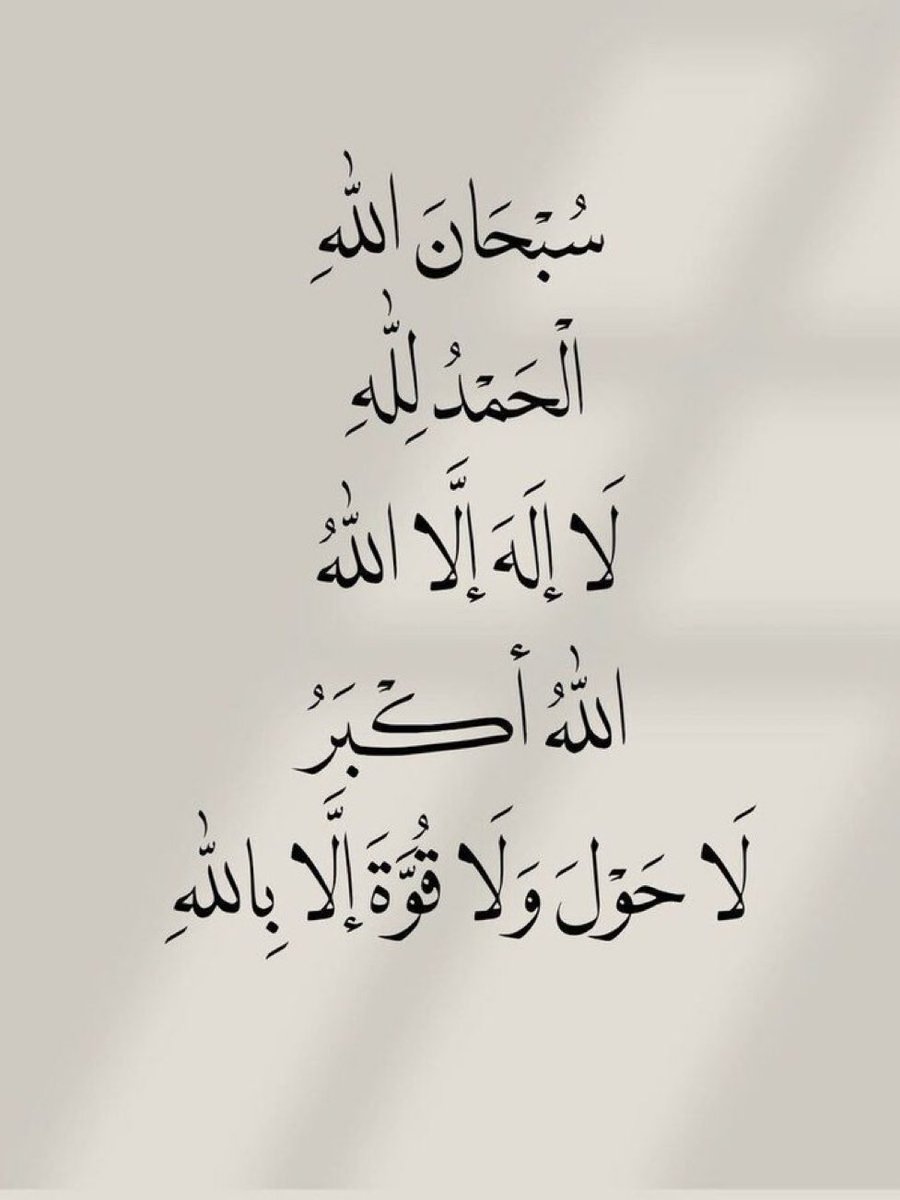 سُبْحَانَ اللّٰهِ
الْحَمْدُ لِلّٰهِ
لَا إِلَهَ إِلَّا اللّٰهُ
اللّٰهُ أَكْبَرُ
لَا حَوْلَ وَلَا قُوَّةَ إِلَّا بِاللّٰهِ